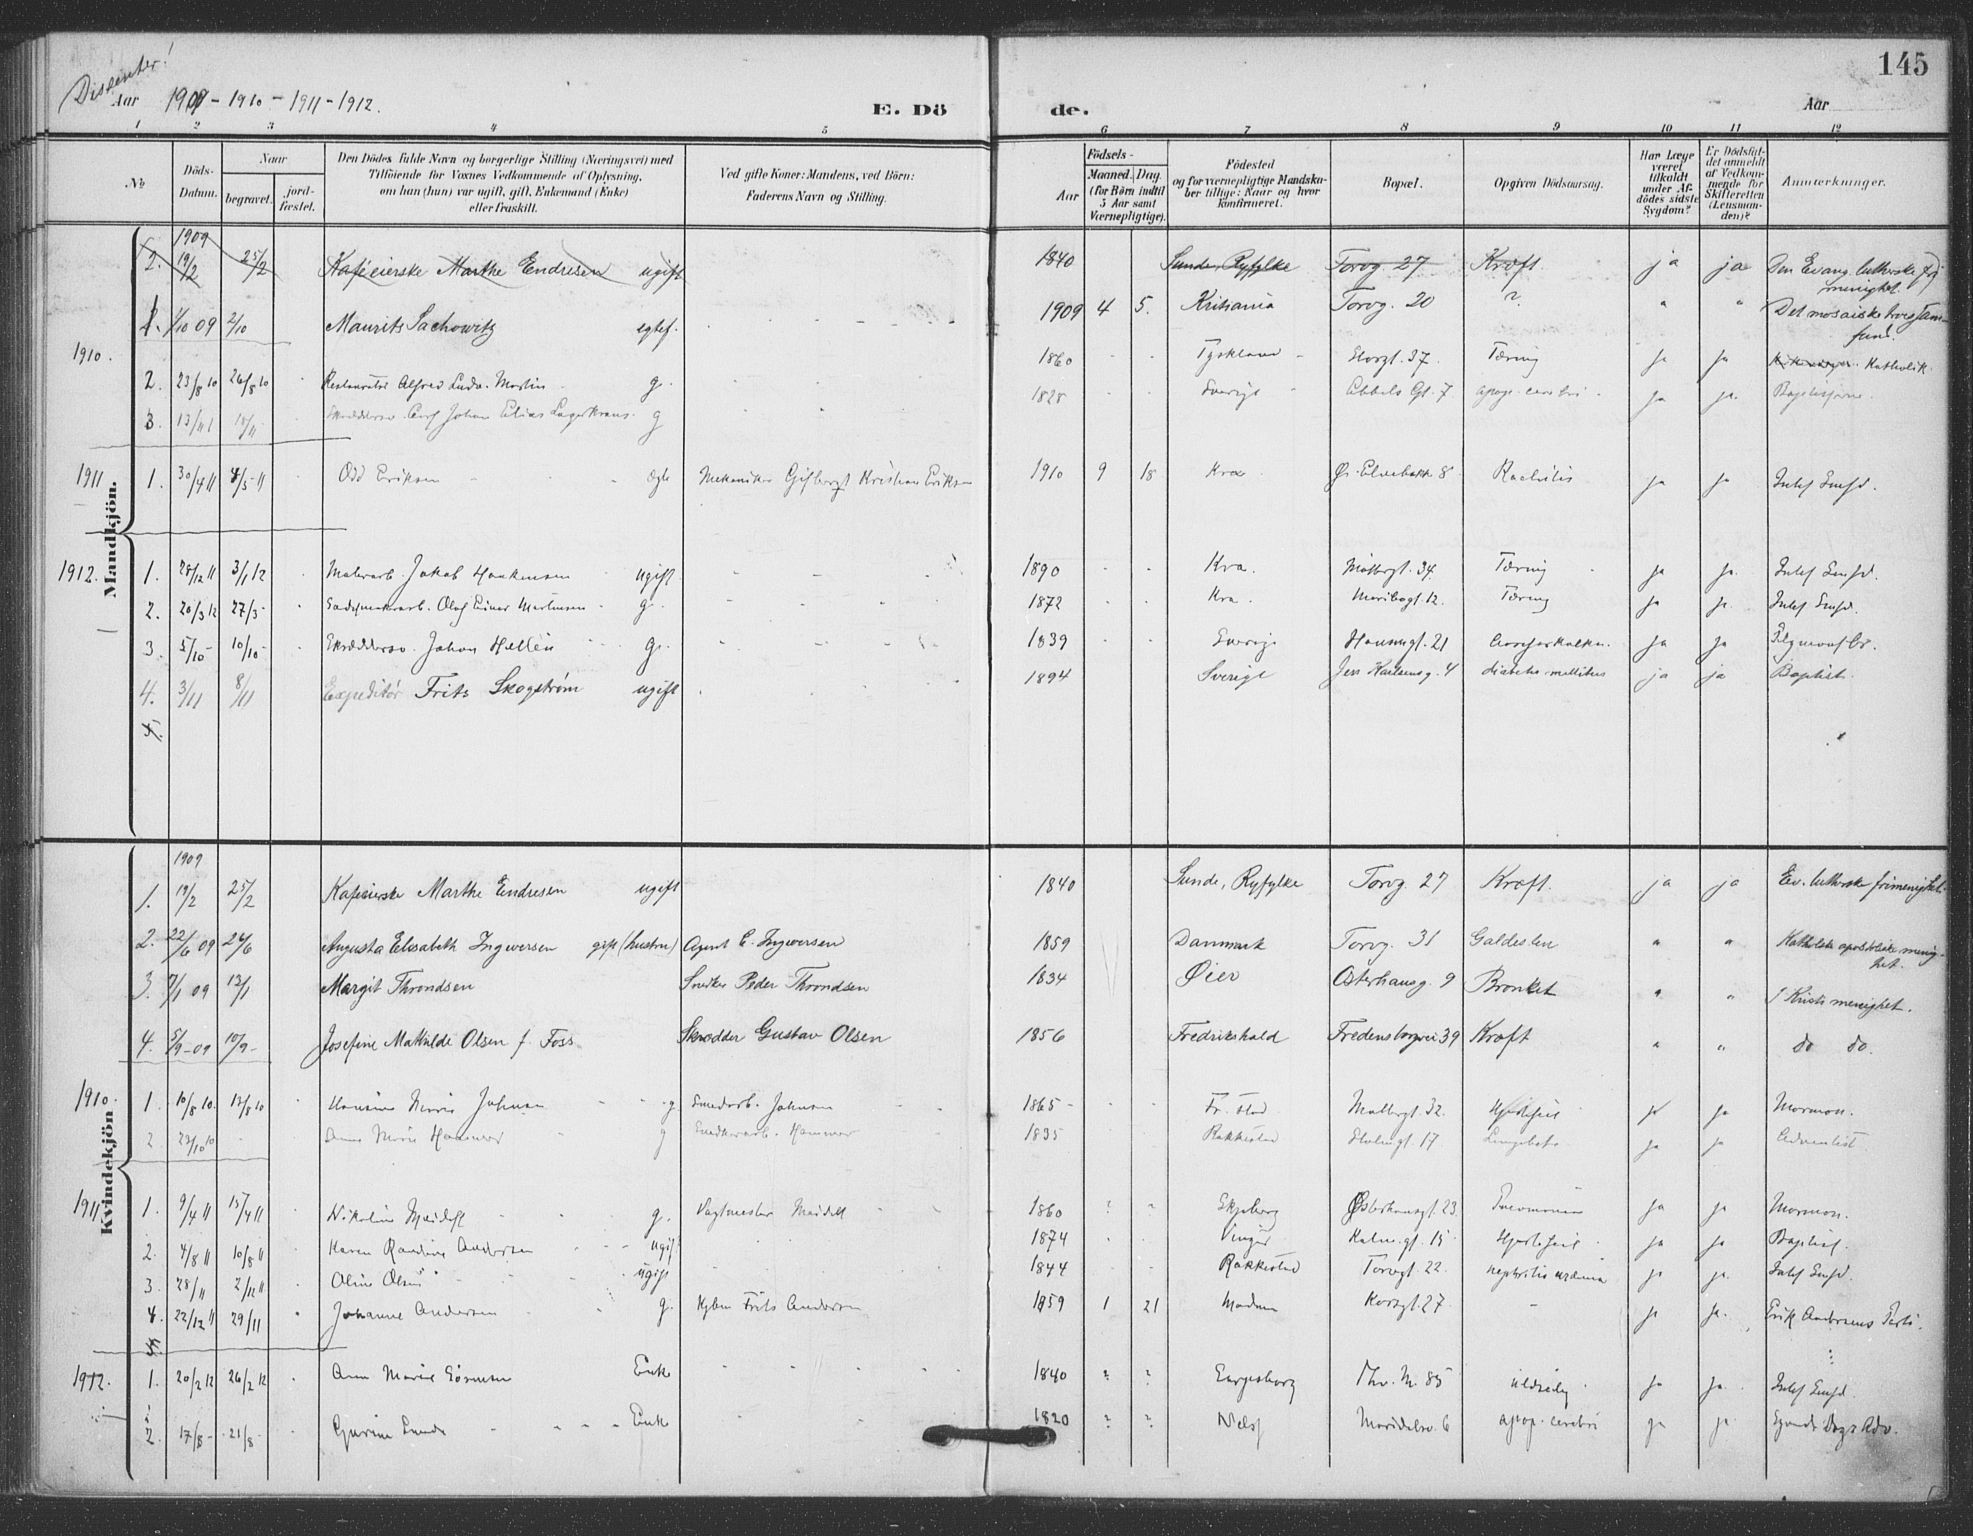 Dissenter!
145
Aar 1909 - 1910 - 1911 - 1912.
E. Döde.
Aar
1 2 3 4 5 6 7 8 9 10 11 12
No
Döds-Datum.
Naar
begravet.
jord-fæstet.
Den Dödes fulde Navn og borgerlige Stilling (Næringsvei) med
Tilföiende for Voxnes Vedkommende af Oplysning,
om han (hun) var ugift, gift, Enkemand (Enke)
eller fraskilt.
Ved gifte Koner: Mandens, ved Börn:
Faderens Navn og Stilling.
Födsels-
Aar
Maaned. Dag.
(for Börn indtil
5 Aar samt
Værnepligtige).
Födested
og for værnepligtige Mandska-
ber tillige: Naar og hvor
konfirmeret.
Bopæl.
Opgiven Dödsaarsag.
Har Læge
været
tilkaldt
under Af-
dödes sidste
Sygdom?
Er Dödsfal-
det anmeldt
af Vedkom-
mende for
Skifteretten
(Lensman-
den)?
Anmærkninger.
Mandkjön.
1909
2. 19/2 25/2 Kaféeierske Marthe Endresen ugift 1840 Sunde, Ryfylke Torvg. 27 Kræft. ja ja Den Evang. lutherske fri
menighet.
1. 1/10 09 2/10 Maurits Sachowitz egtef. 1909 4 5. Kristiania Torvg. 20 ? " " Det mosaiske trossam-
fund.
1910.
2. 23/8 10 26/8 10 Restauratør Alfred Ludv. Martin g. 1860 Tyskland Storgt. 37. Tæring ja ja Katholik.
3. 13/11 Johan Elias Lagerkrans. g 1828 Sverige Gt. 7 apop. cerebri ja ja
1911
1. 30/4 11 4/5 11 Odd Eriksen Ægte Mekaniker Kristian Eriksen 1910 9 18 Kra Ø. Elvebakke 8 Rachitis ja ja
1912.
1. 28/12 11 3/1 12 Malerarb. Jakob Haakensen ugift. 1890 Kra. Møllergt. 34. Tæring ja ja
2. 20/3 12 27/3 Olaf Einar Martinsen g. 1872 Kra. Maribogt. 12. Tæring ja ja
3. 5/10 10/10 Skræddersv. Johan Hellén g. 1839 Sverige Hausmgt. 21 ja ja
4. 3/11 8/11 Expeditør Frits Skogstrøm ugift 1894 Sverige Jens 4 diabetes mellitus ja ja Baptist.
5.
Kvindekjön
1909
1. 19/2 25/2 Kaféeierske Marthe Endresen ugift 1840 Sunde, Ryfylke Torvg. 27 Kræft. ja ja Ev. lutherske frimenighet.
2. 22/6 09 26/6 Augusta Elisabeth Ingwersen gift (hustru) Agent C. Ingwersen 1859 Danmark Torvg. 31 Galdesten " " Katholsk apostoliske menig-
het.
3. 7/1 09 13/1 Margit Throndsen Snedker Peder Throndsen 1834 Øier Osterhausg. 9 Bronket " " Kristi menighet.
4. 5/9-09 10/9- Josefine Mathilde Olsen f. Foss Skrædder Gustav Olsen 1856 Fredrikshald Fredensborgvei 39 Kræft " " do do.
1910.
1. 10/8 10. 13/8 10 Marie Johnsen g. Smedarb. Johnsen 1865 Fr.stad Møllergt. 32. Hjertefeil ja ja Mormon.
2 23/10 10 Anna Marie Hammer g Snedkerarb. Hammer 1835 Rakkestad Holmgt. 17 ja ja Adventist
1911
1. 9/4 11 15/4 11 Nikoline Meidell g. Vagtmester Meidell 1860 ? Skjeberg Østerhausgt. 23. Pneumonia ja ja Mormon.
2. 4/8 11 10/8 11 Karen Randine Andersen ugift 1874 Vinger 15 Hjertefeil ja ja Baptist.
3. 28/11 2/12 11 Oline Olsen ugift 1844 Rakkestad Torvgt. 22. nephritis uræmia ja ja
4. 22/12 11 29/11 Johanne Andersen g. Frits Andersen 1859 1 21 Modum Korsgt. 27 ja ja. Erik Andersens Parti.
5.
1912.
1. 20/2 12 26/2 12 Ann Marie Sørensen Enke 1840 ? ? Sarpsborg Thv. M. 85 ja ja
2. 17/8 21/8 Gurine Lunde Enke 1820 ? ? Næs Maridalsv. 6 apop. cerebri ja ja